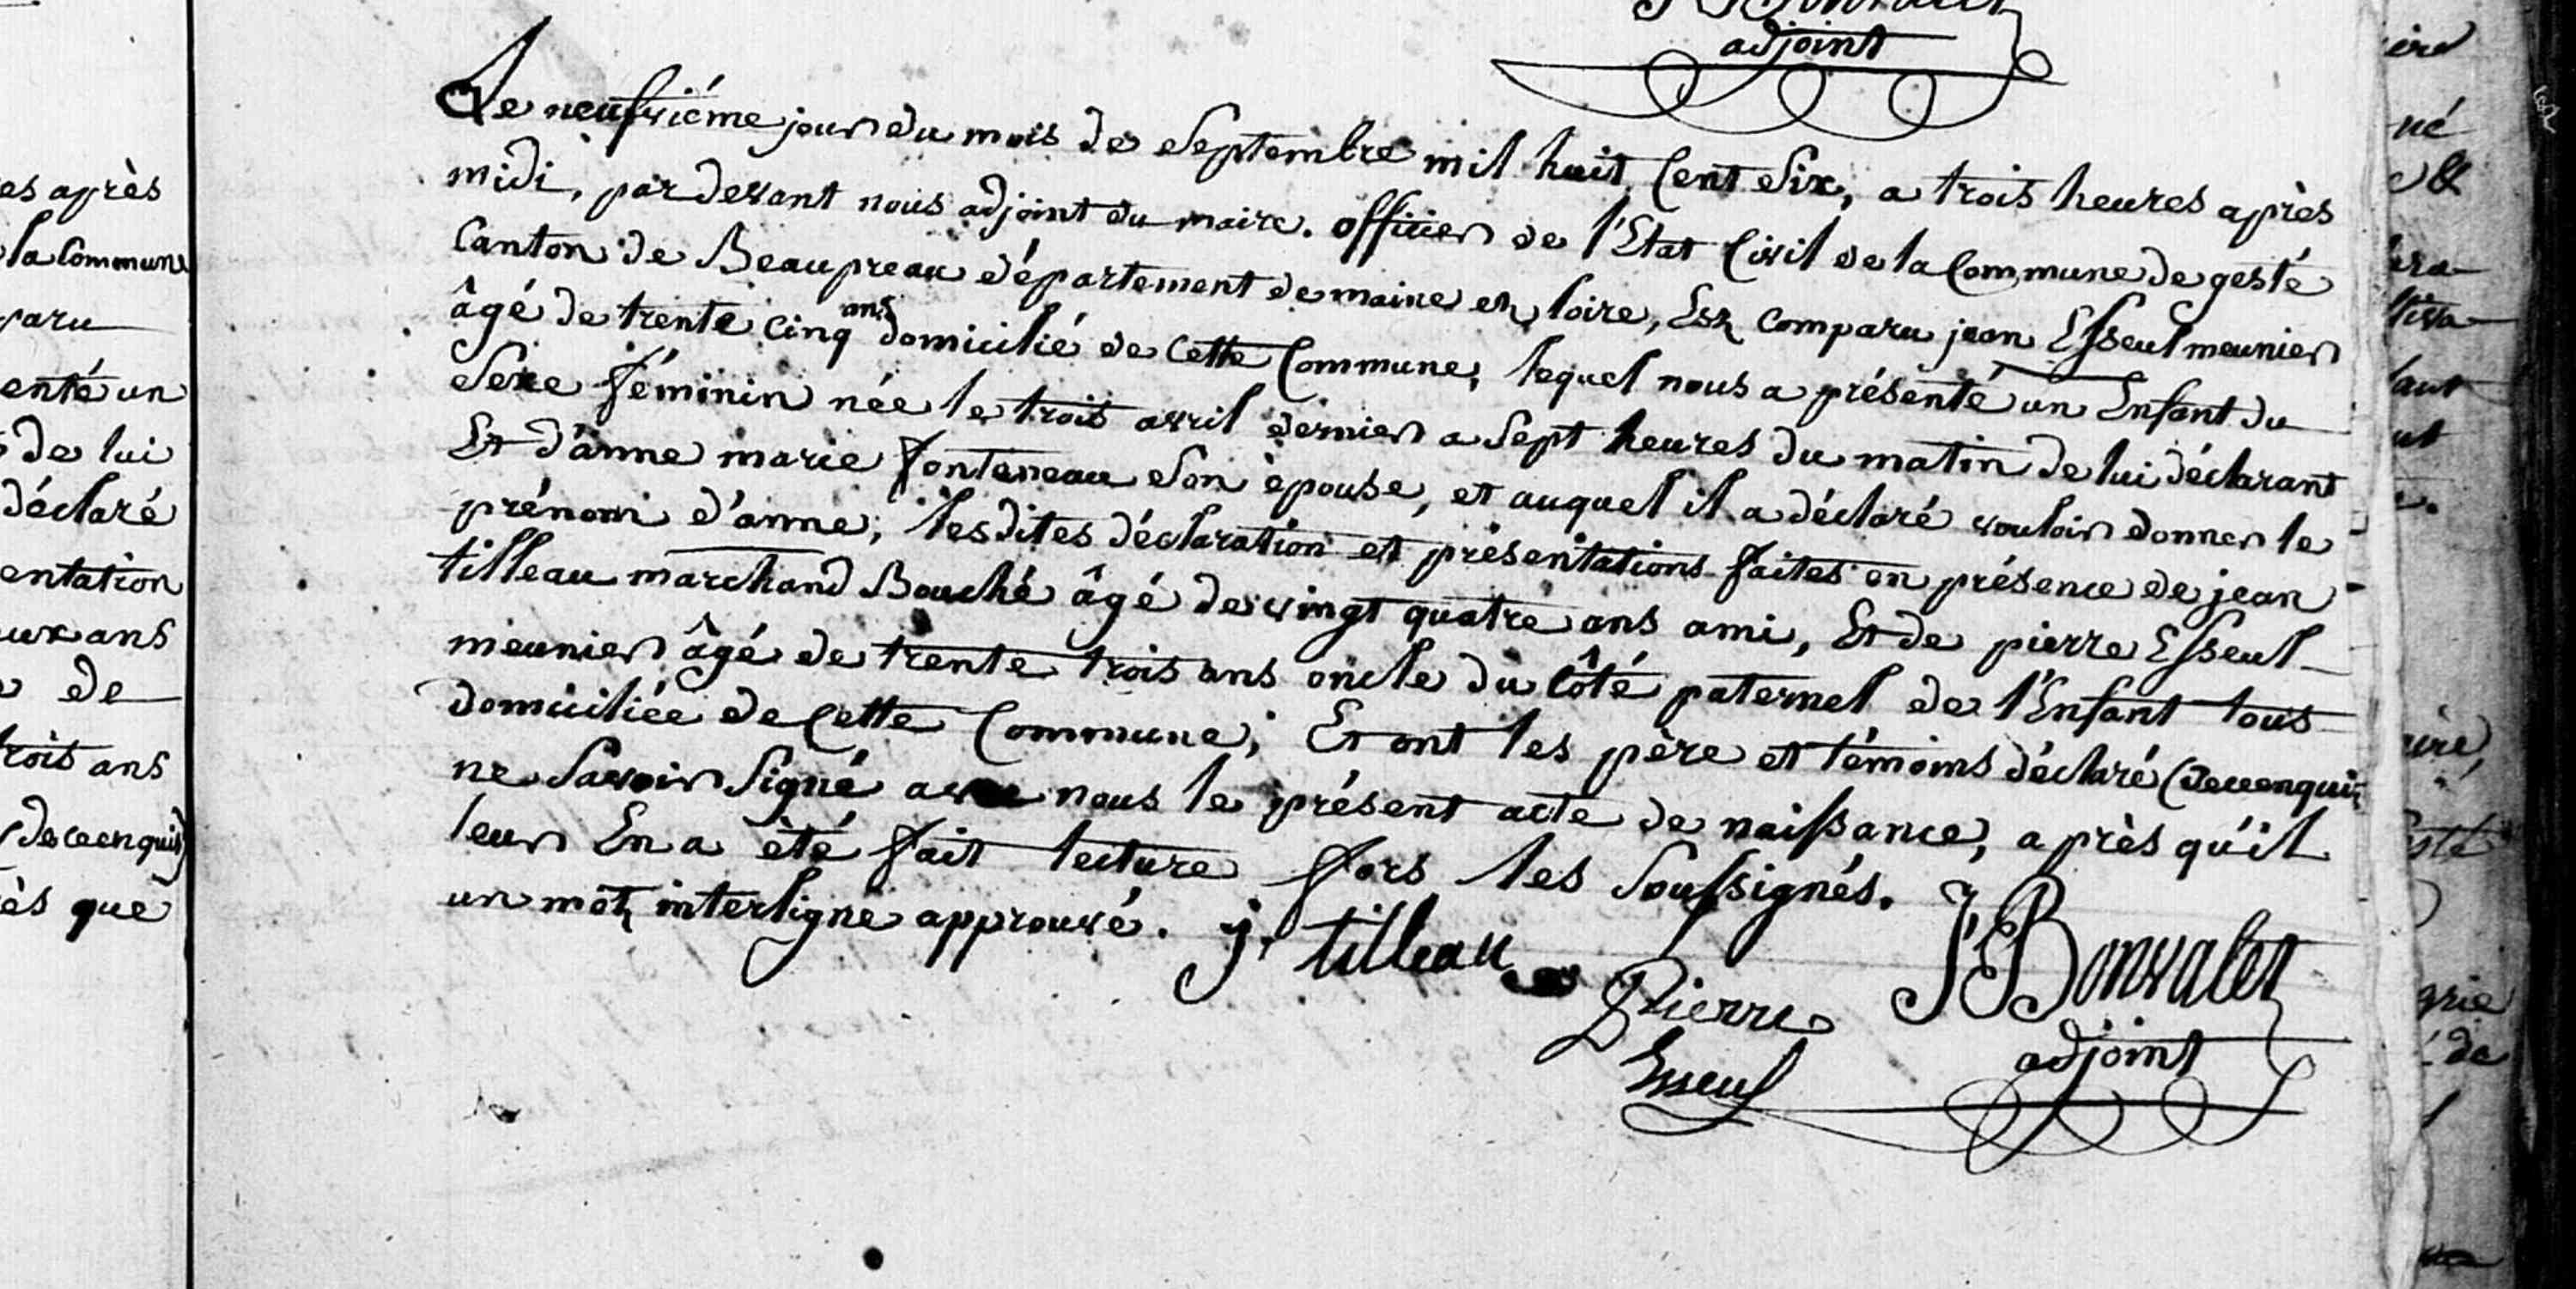 adjoint
es après
la Commune
paru
enté un
de lui
déclaré
entation
ux ans
de
trois ans
(de ce enquis)
ès que
Le neufvième jour du mois de Septembre mil huit Cent Six, a trois heures après
midi, par devant nous adjoint du maire. officier de l'Etat Civil de la Commune de gesté
Canton de Beaupreau département de maine et loire, Est comparu jean Esseul meunier
âgé de trente cinq ans domicilié de cette Commune, lequel nous a présenté un Enfant du
Sexe féminin née le trois avril dernier a Sept heures du matin de lui déclarant
Et d'anne marie fonteneau Son épouse, et auquel il a déclaré vouloir donner le
prénom d'anne; lesdites déclaration et présentations faites en présence de jean
tilleau marchand Bouché âgé de vingt quatre ans ami, Et de pierre Esseul
meunier âgé de trente trois ans oncle du côté paternel de l'Enfant tous
domiciliée de Cette Commune; Et ont les père et témoins déclaré (de ce enquis
ne Savoir Signé avec nous le présent acte de naissance, après qu'il
leur En a été fait lecture fors les Soussignés.
un mot interligne approuvé. j. tilleau
Pierre
Esseul
J Bonvalet
adjoint
né
de